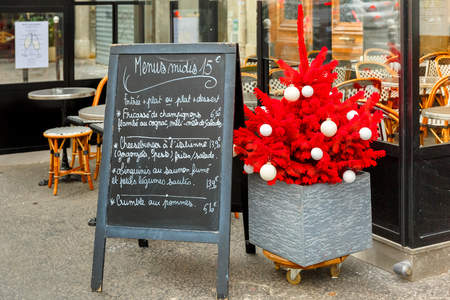 Menus midis 15€
Entrée + plat ou plat + dessert
+ Fricassé de champignons 6,50
flambé au cognac, salade
+ Cheeseburger à l'italienne 13,90
(gorgonzola, pesto) frites, salade.
+ Linguinis au saumon fumé
et petits légumes sautés. 13,90
+ Crumble aux pommes. 6,50